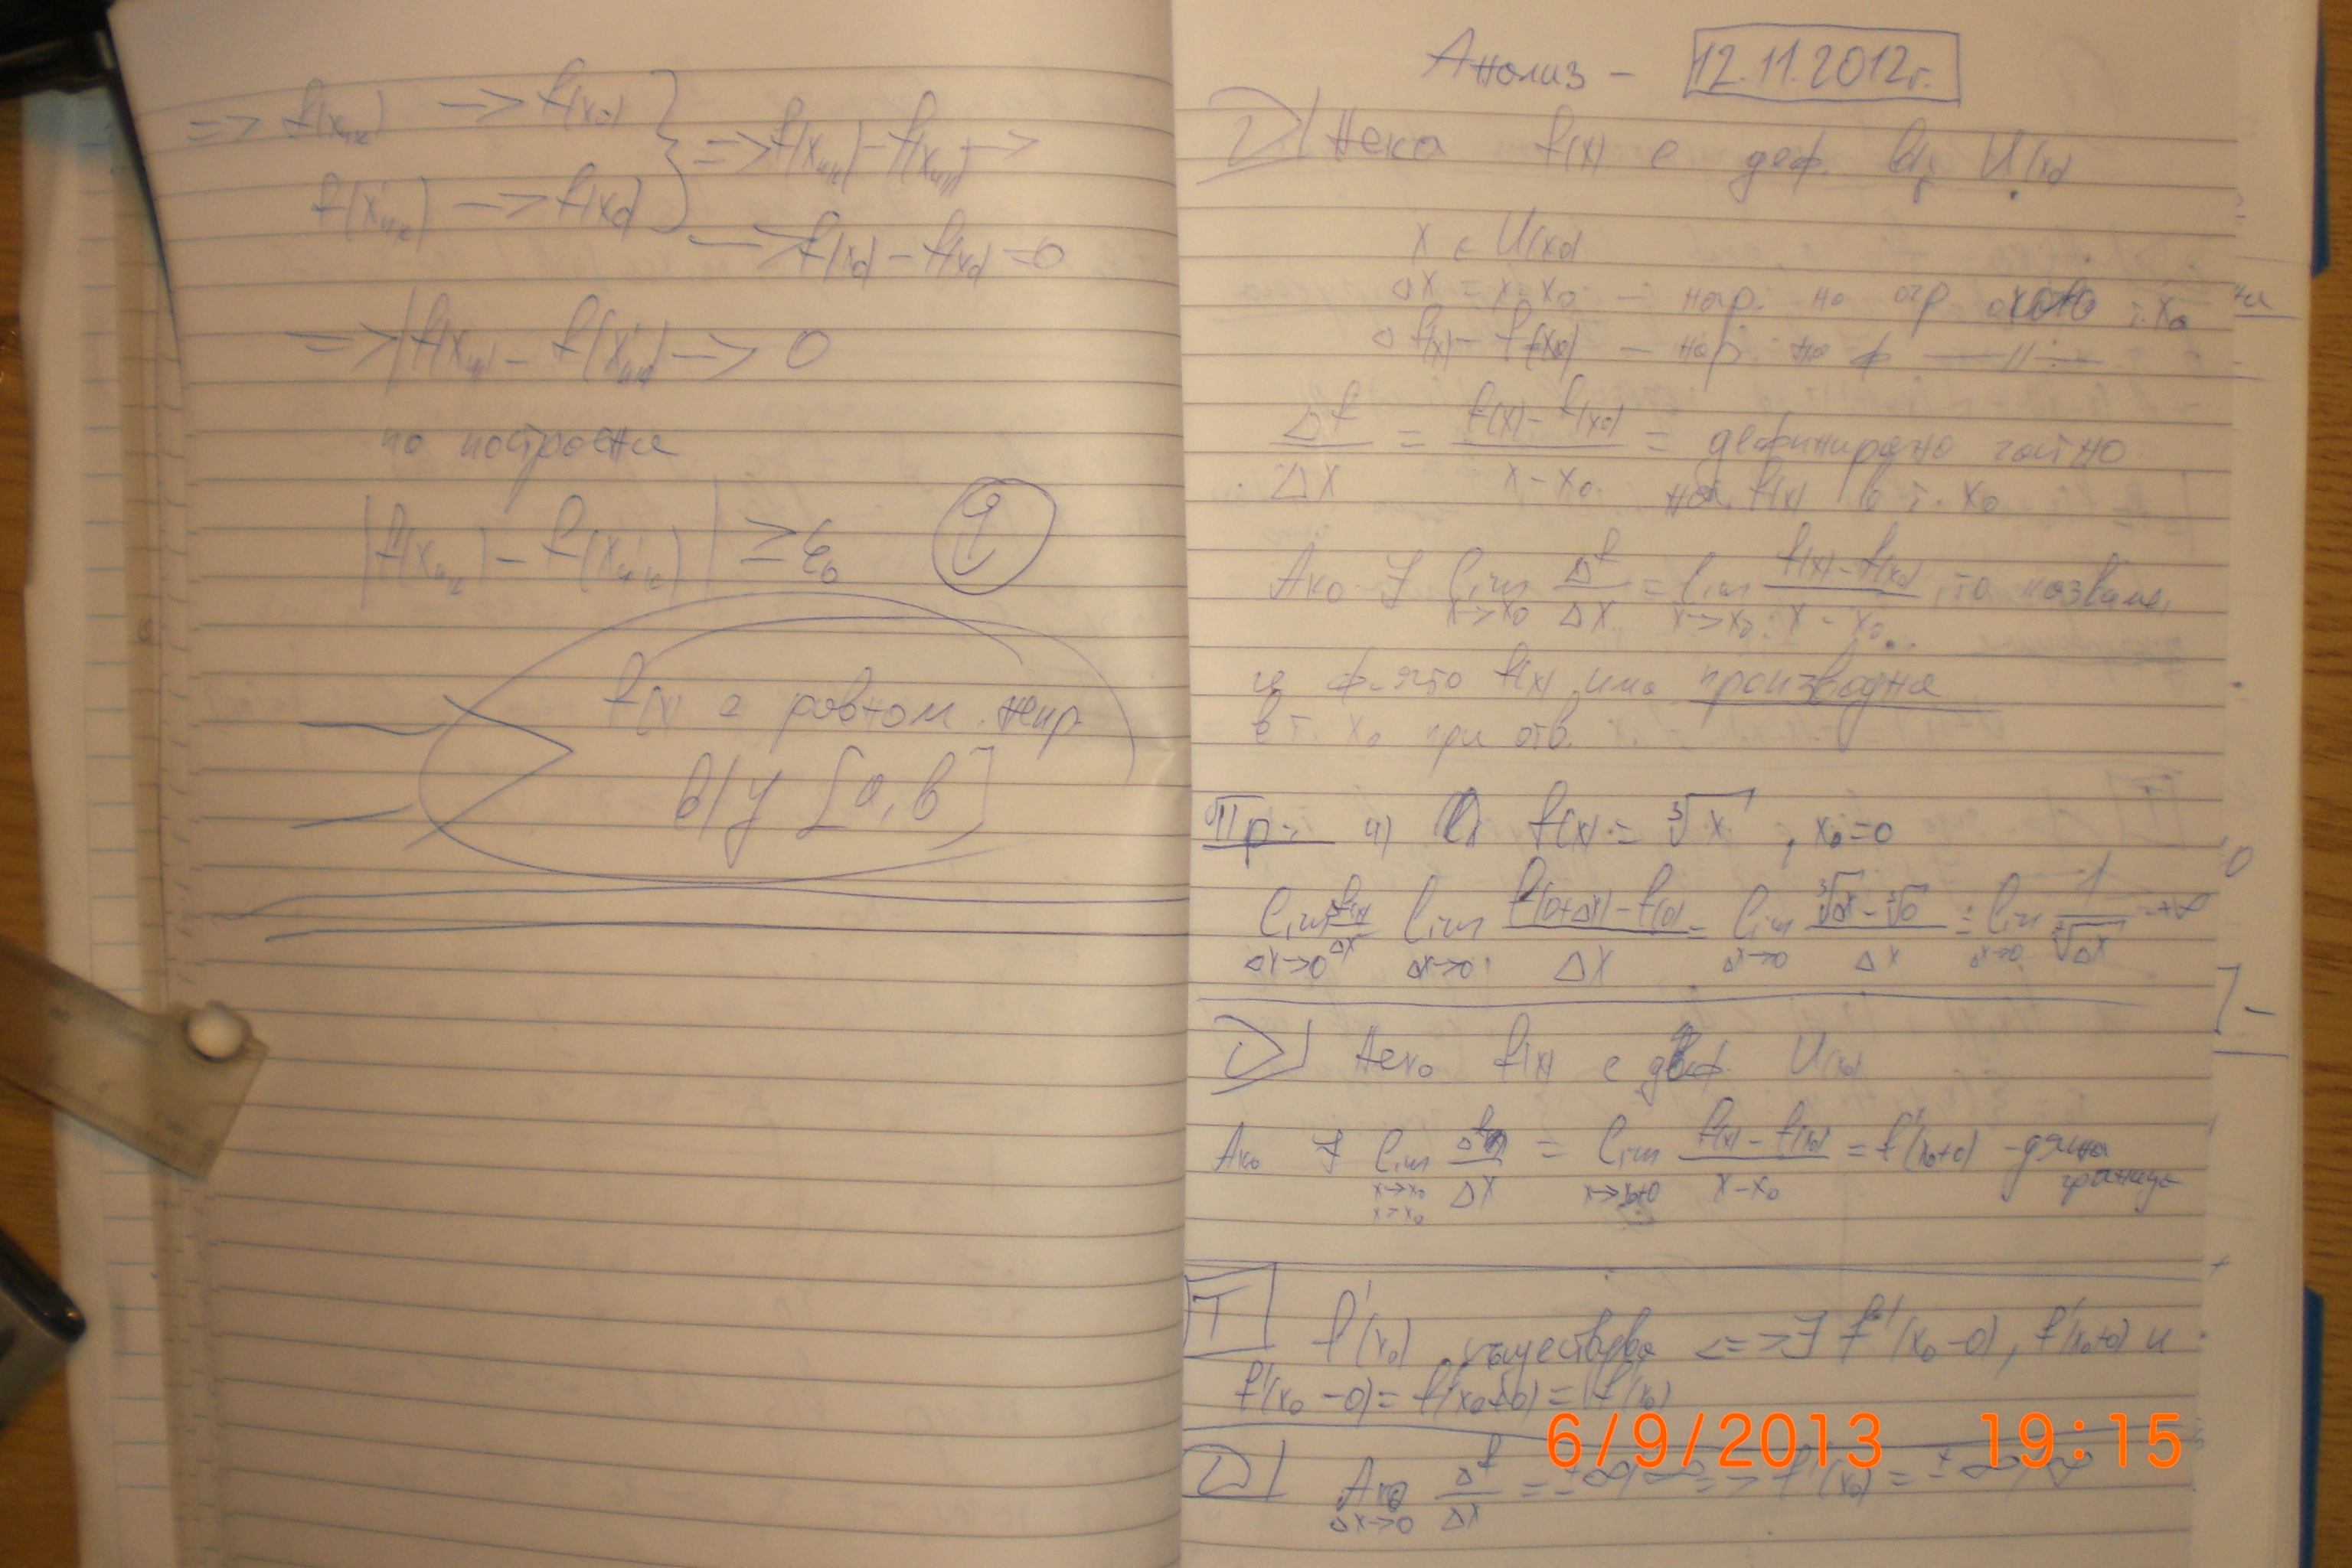 => f(x_nk) -> f(x_0) } => f(x_nk) - f(x'_nk) ->
f(x'_nk) -> f(x_0) } -> f(x_0) - f(x_0) = 0
=> |f(x_nk) - f(x'_nk)| -> 0
по построение
|f(x_nk) - f(x'_nk)| ≥ ε_0
=> f(x) е равном. непр.
в/у [a, b]
Анализ - 12.11.2012г.
D| Нека f(x) е деф. в U(x_0)
x ∈ U(x_0)
Δx = x - x_0 - нар. на арг. около т. x_0
Δf(x) - f(x_0) - нар. на ф —— // ——
Δf/Δx = (f(x) - f(x_0))/(x - x_0) = частно
на f(x) в т. x_0
Ако ∃ lim_{x->x_0} Δf/Δx = lim_{x->x_0} (f(x) - f(x_0))/(x - x_0), то казваме,
че ф-ята f(x) има производна
в т. x_0 при отв.
Пр: f(x) = ∛x, x_0 = 0
lim_{Δx->0} f(x)/Δx lim_{Δx->0} (f(0+Δx) - f(0))/Δx = lim_{Δx->0} (∛Δx - ∛0)/Δx = lim_{Δx->0} 1/∛Δx = +∞
D| Нека f(x) е деф. U(x_0)
Ако ∃ lim_{x->x_0, x>x_0} Δf(x)/Δx = lim_{x->x_0+0} (f(x) - f(x_0))/(x - x_0) = f'(x_0+0) - дясна
граница
T| f'(x_0) съществува <=> ∃ f'(x_0-0), f'(x_0+0) и
f'(x_0-0) = f'(x_0+0) = f'(x_0)
D| Ако_{Δx->0} Δf/Δx = ±∞/∞ => f'(x_0) = ±∞/∞
6/9/2013 19:15